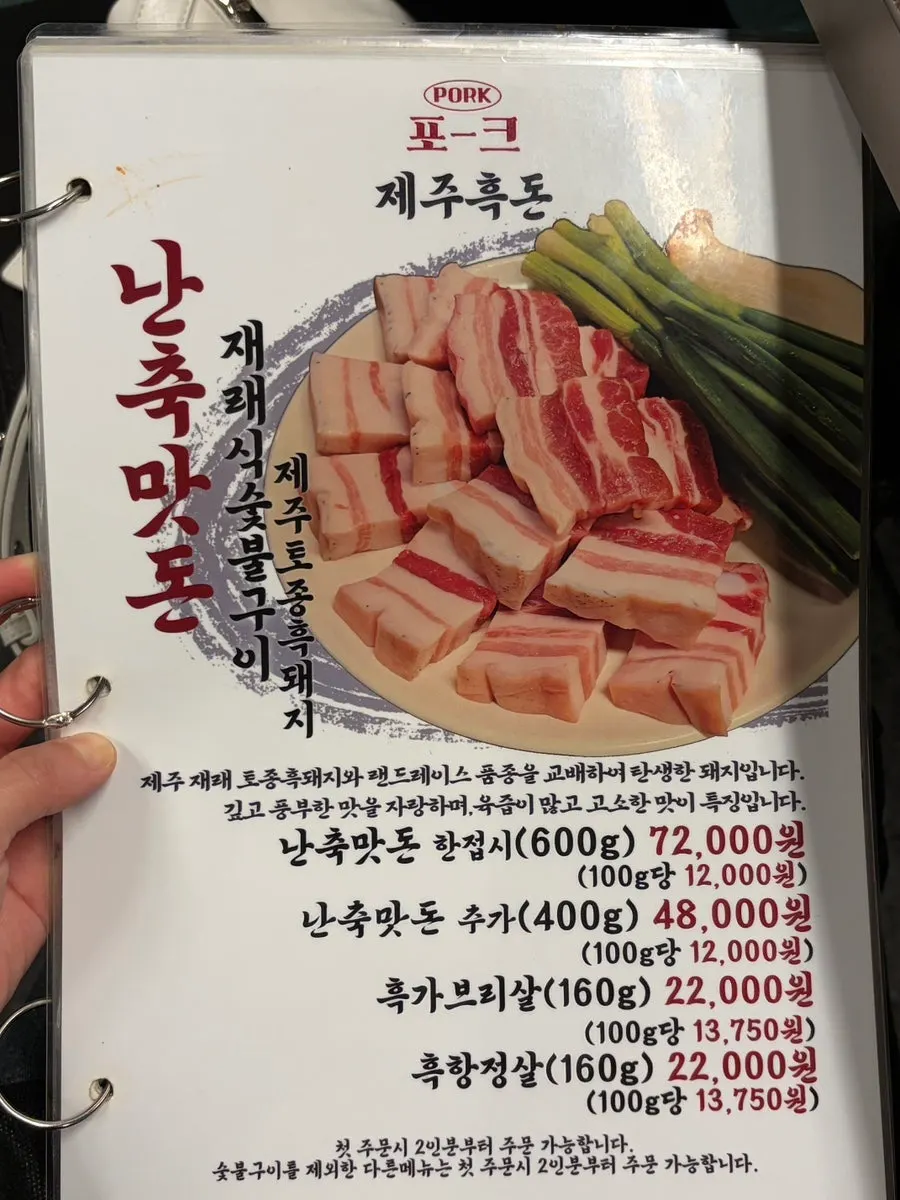 PORK
포크
제주흑돈
난축맛돈
재래식숯불구이
제주토종흑돼지
제주 재래 토종흑돼지와 랜드레이스 품종을 교배하여 탄생한 돼지입니다.
깊고 풍부한 맛을 자랑하며,육즙이 많고 고소한 맛이 특징입니다.
난축맛돈 한접시(600g) 72,000원
(100g당 12,000원)
난축맛돈 추가(400g) 48,000원
(100g당 12,000원)
흑가브리살(160g) 22,000원
(100g당 13,750원)
흑항정살(160g) 22,000원
(100g당 13,750원)
첫 주문시 2인분부터 주문 가능합니다.
숯불구이를 제외한 다른메뉴는 첫 주문시 2인분부터 주문 가능합니다.